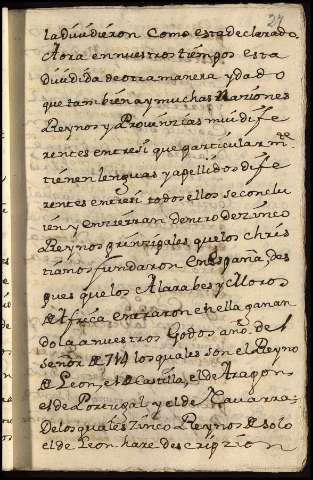 27
la dividieron como esta declarado,
Aora en nuestros tiempos esta
dividida de otra manera y dado
que tambien ay muchas Naziones
Reynos y Provinzias mui dife
rentes entre si que particular mte
tienen lenguas y apellidos dife
rentes entre si todos ellos se conclu
ien y enzierran dentro de zinco
Reynos prinzipales que los chris
tianos fundaron en España, des
pues que los Alarabes y Moros
de Africa entraron en ella ganan
dola a nuestros Godos año del
señor de 714 los quales son el Reyno
de Leon, el de Castilla, el de Aragon
el de Portugal y el de Navarra;
De los quales zinco Reynos de solo
el de Leon hare descripzion